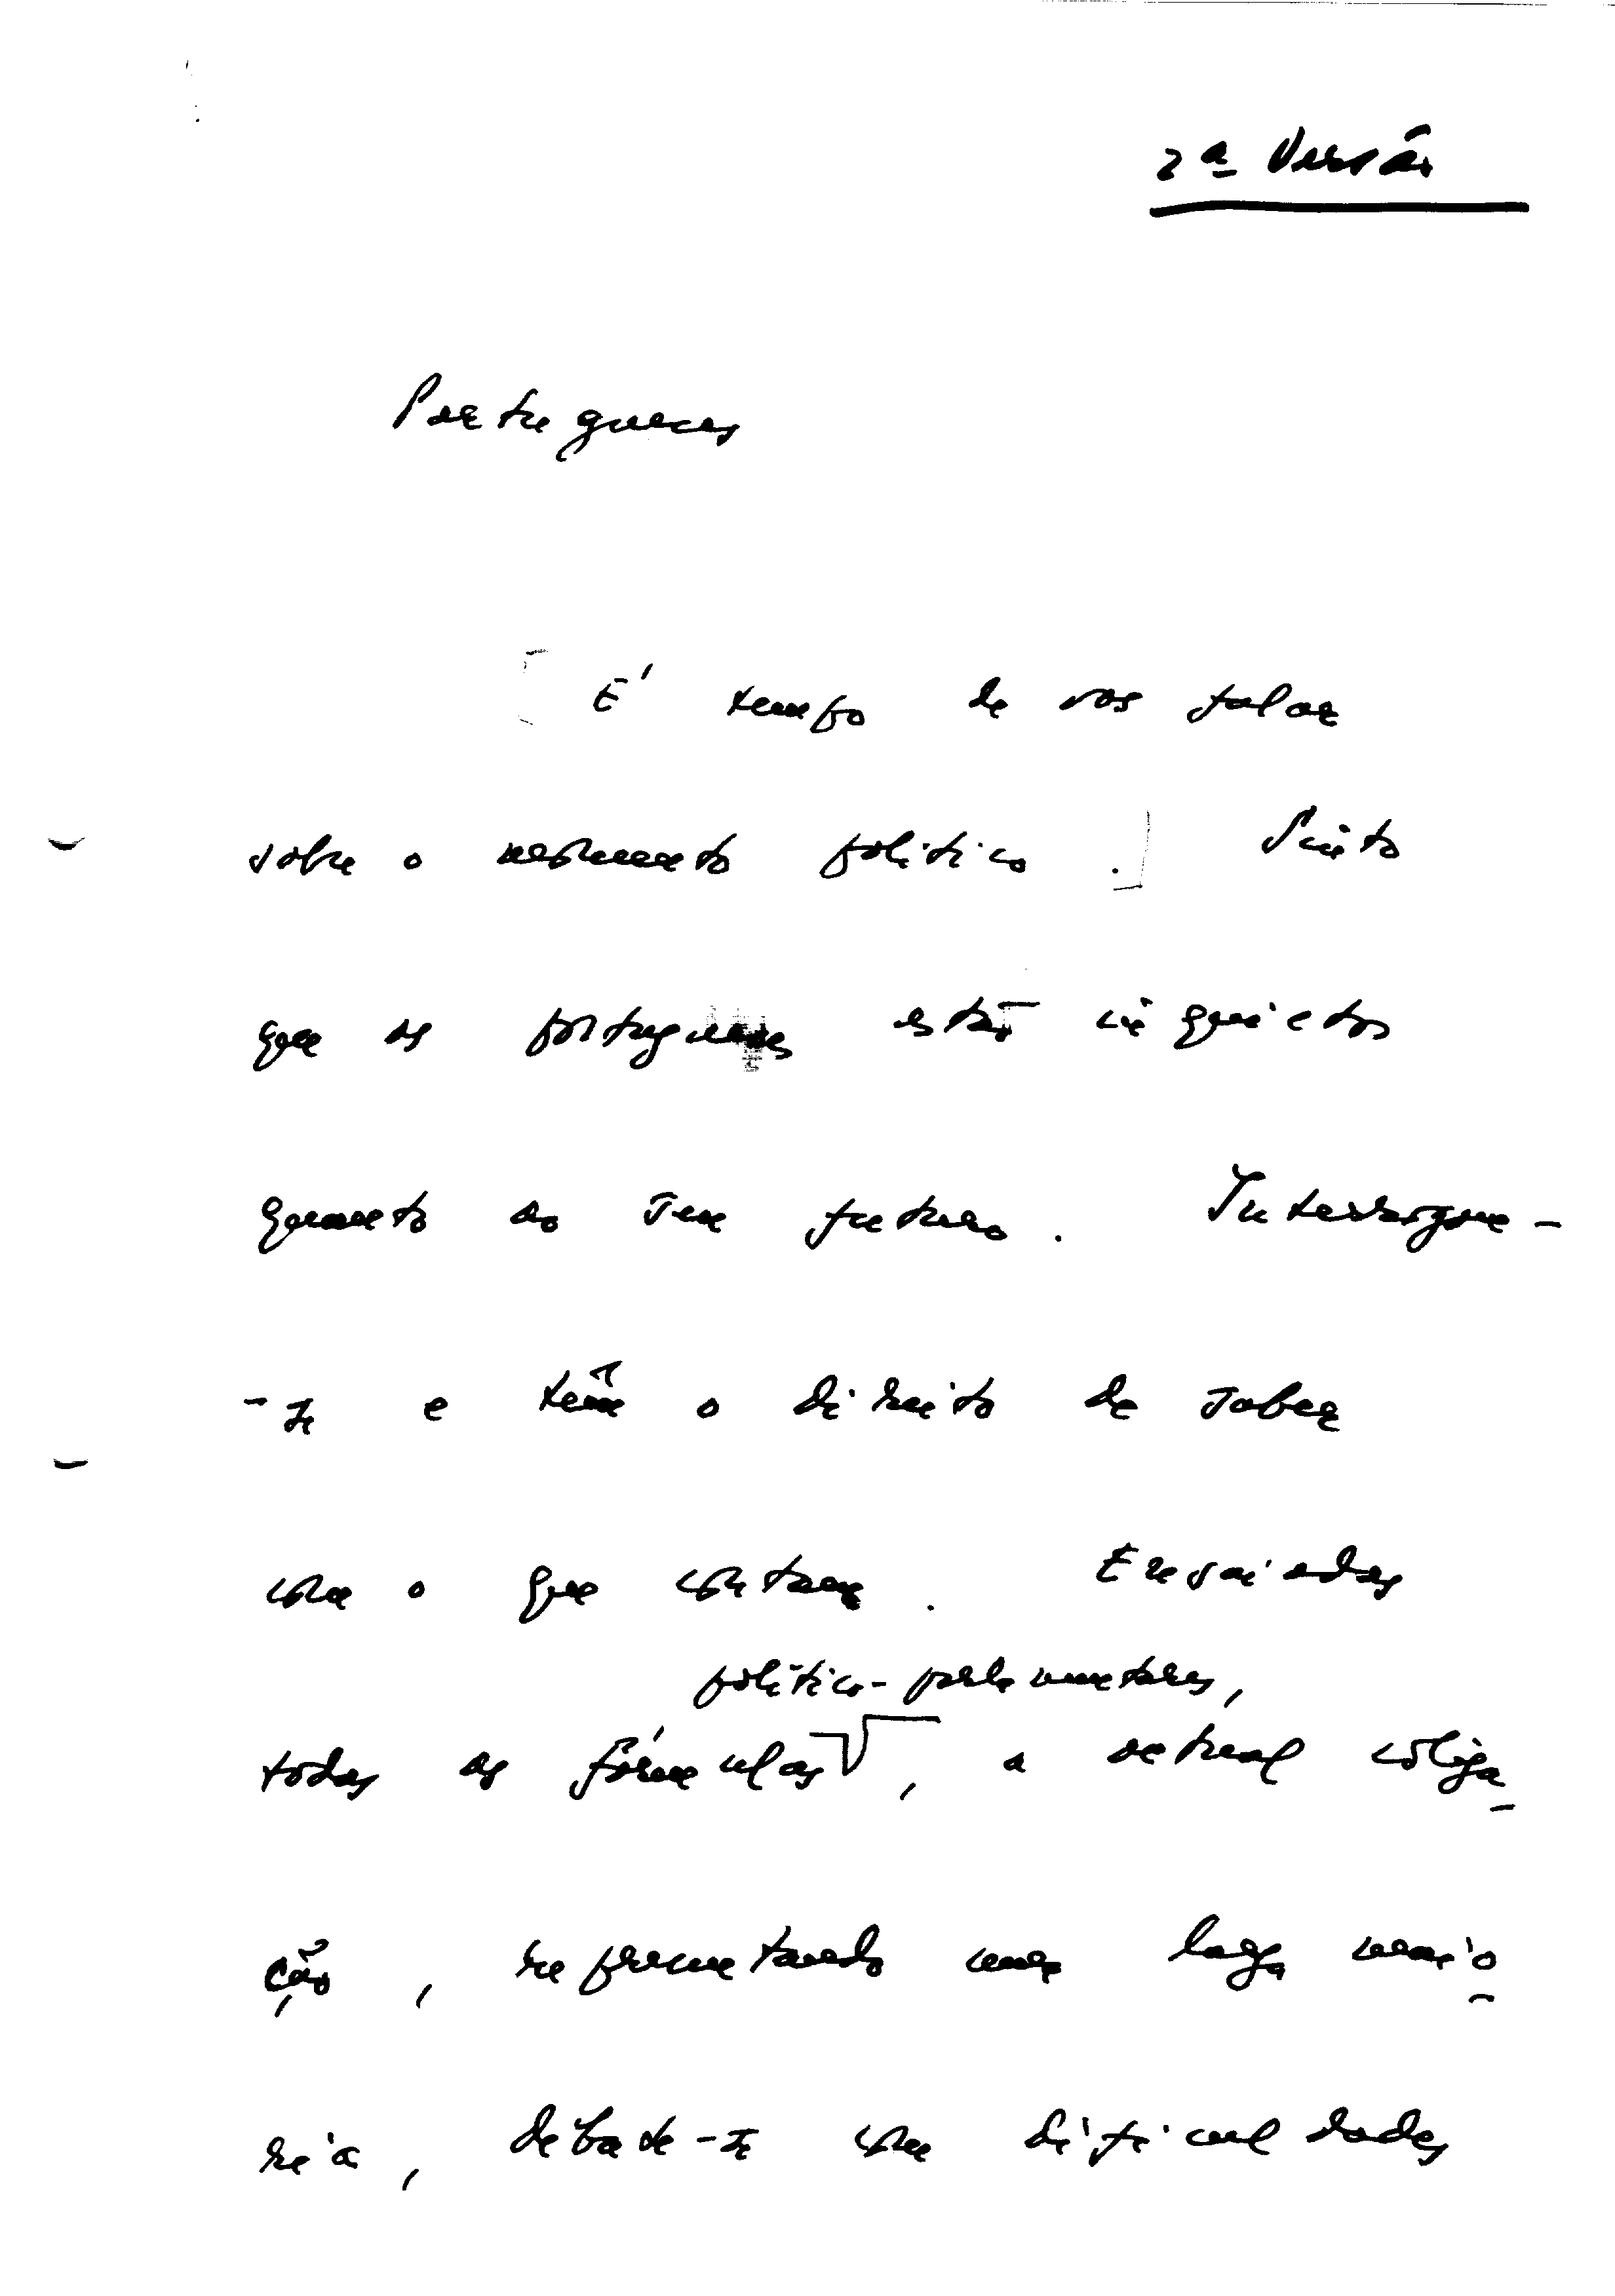 2ª Versão
Portugueses
[É tempo de vos falar
sobre o momento político.] Sinto
que os portugueses estão inquietos
quanto ao seu futuro. Interrogam-
-se e têm o direito de saber
com o que contam. Ensaiadas
político-parlamentares,
todas as fórmulas, a actual coliga-
ção, representando uma larga maio-
ria, debate-se com dificuldades